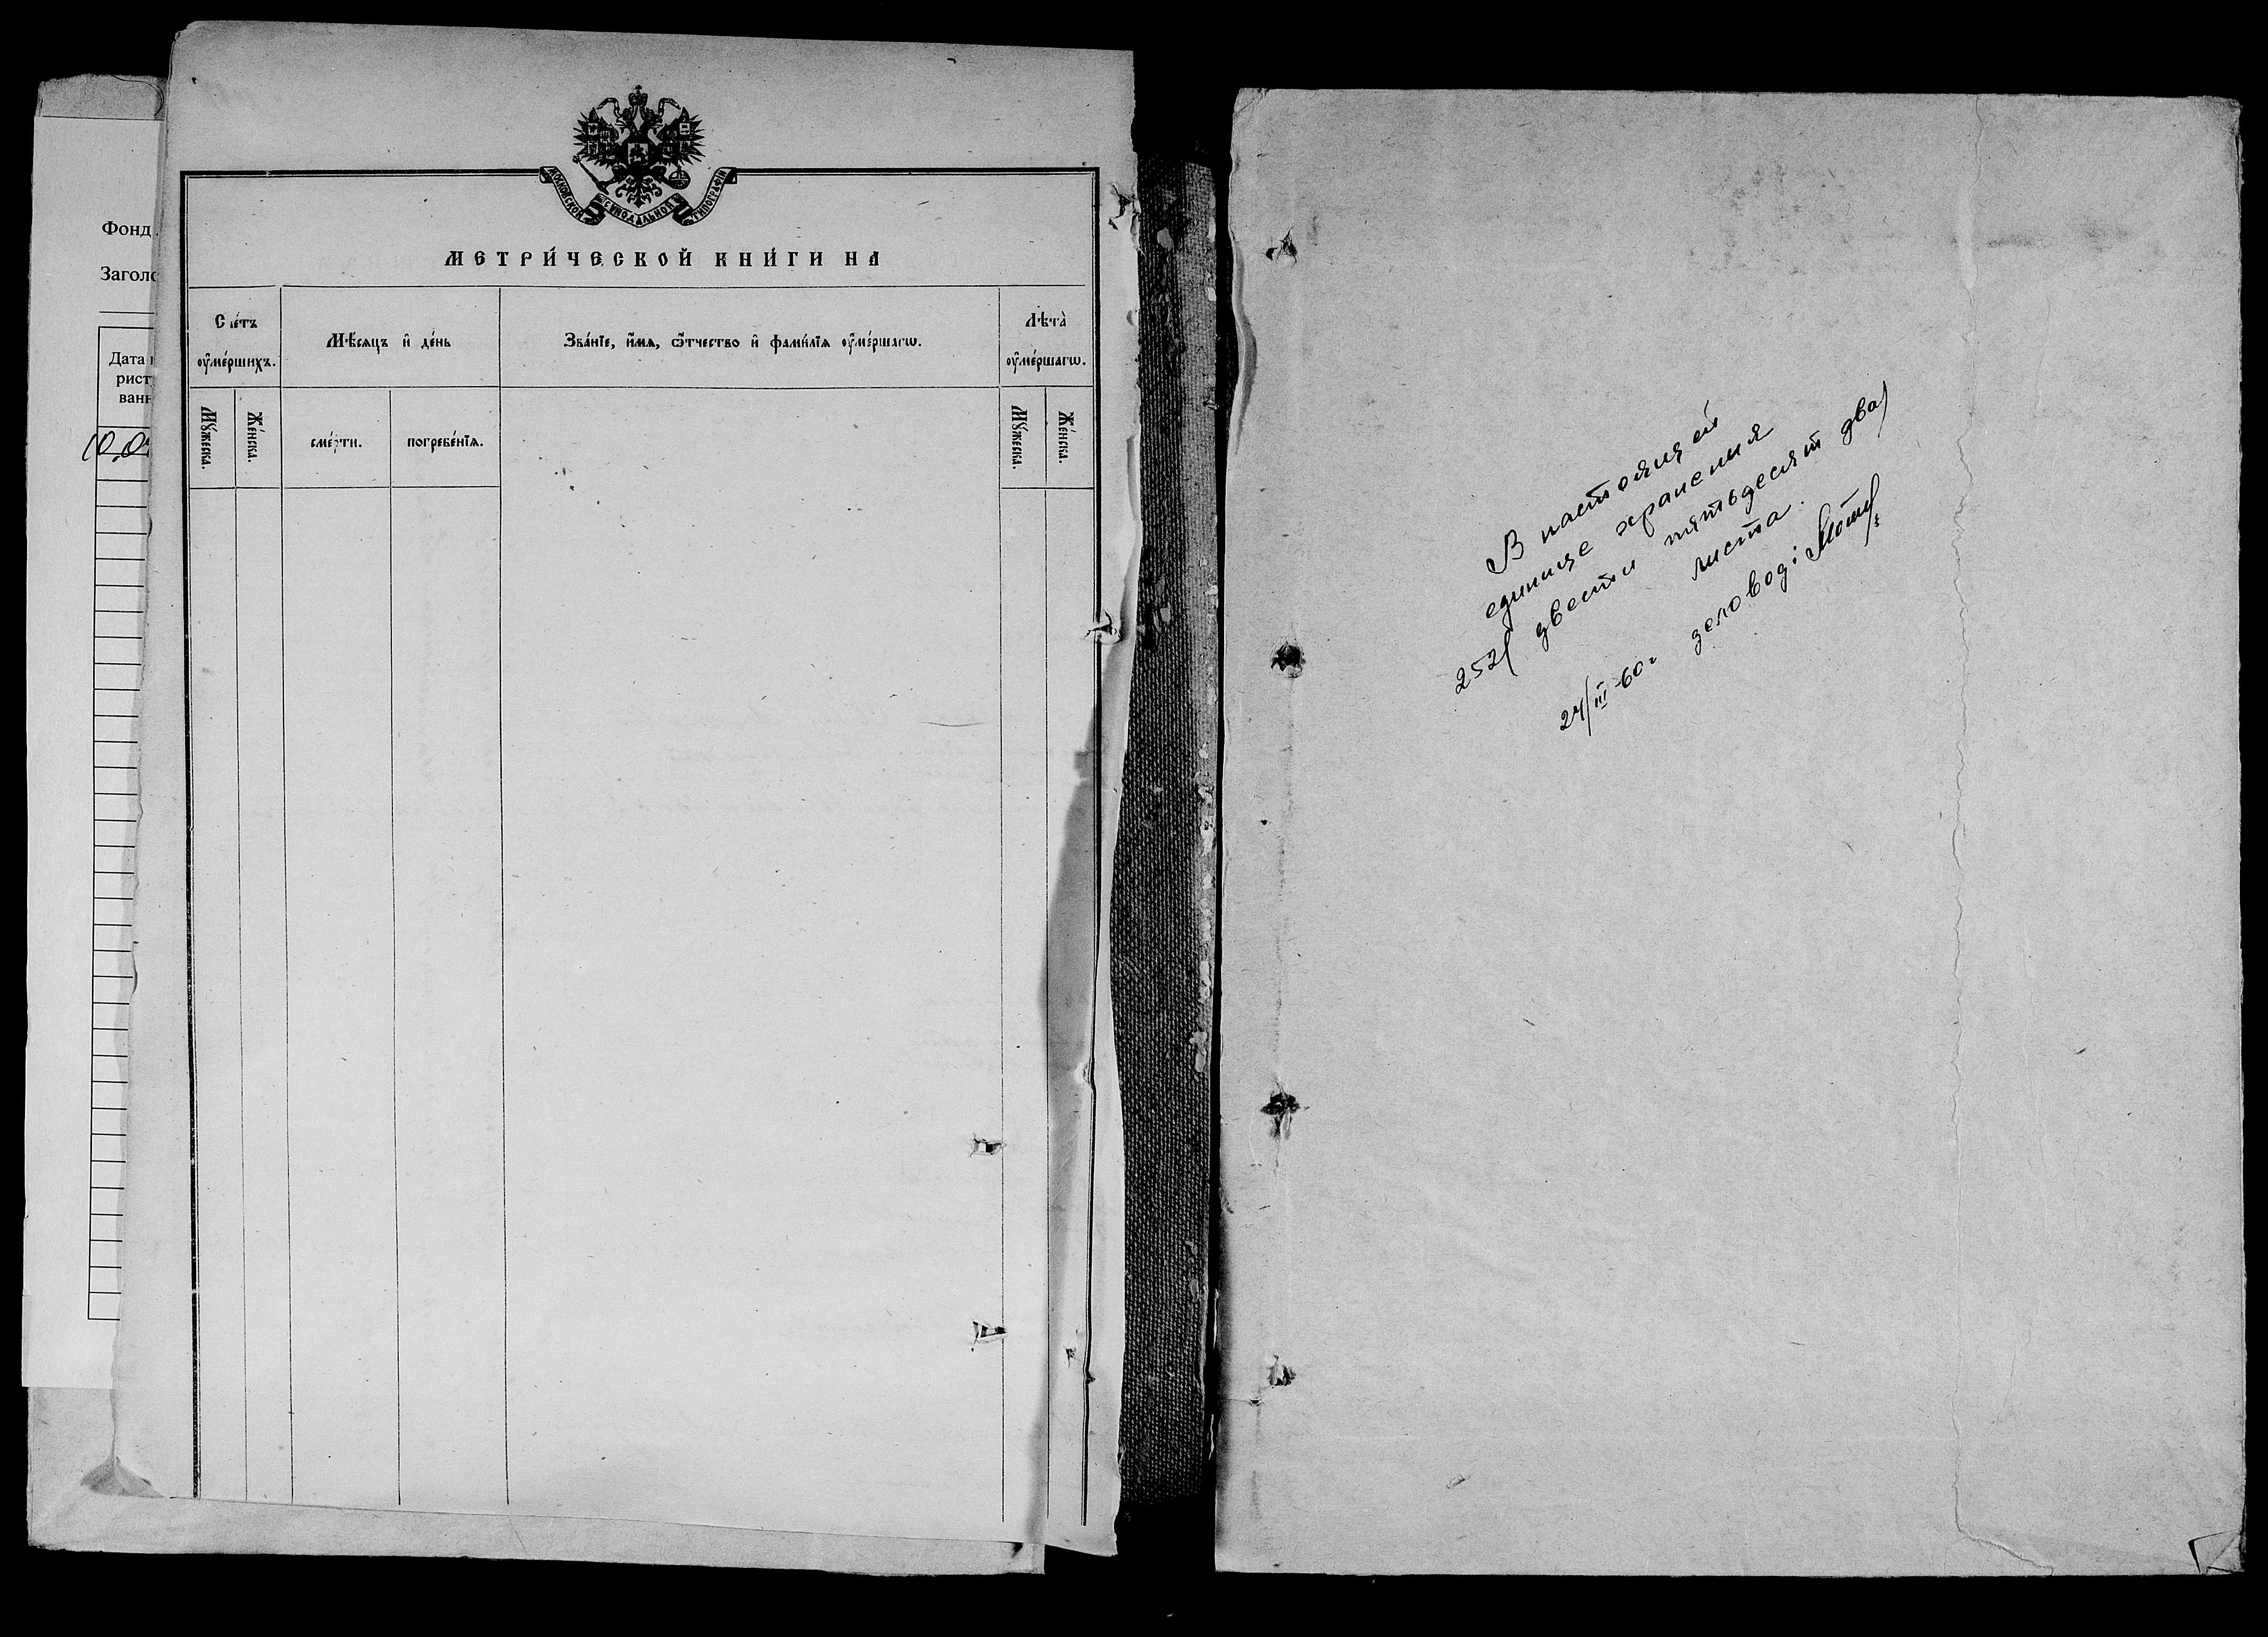 Фонд
Заголо
Дата
рист
ванн
МОСКОВСКОЙ СѴНОДАЛЬНОЙ ТИПОГРАФІИ
МЕТРИ́ЧЕСКОЙ КНИ́ГИ НА
Сче́тъ
оу҆ме́ршихъ.
Мѣ́сяцъ и҆ де́нь
Зва́нїе, и҆́мѧ, ѻ҆́тчество и҆ фами́лїѧ оу҆ме́ршагѡ.
Лѣ́та̀
оу҆ме́ршагѡ.
Мꙋ́жеска.
Же́нска.
сме́рти.
погребе́нїѧ.
Мꙋ́жеска.
Же́нска.
В настоящей
единице хранения
252/ двести пятьдесят два/
листа.
24/III-60г деловод: